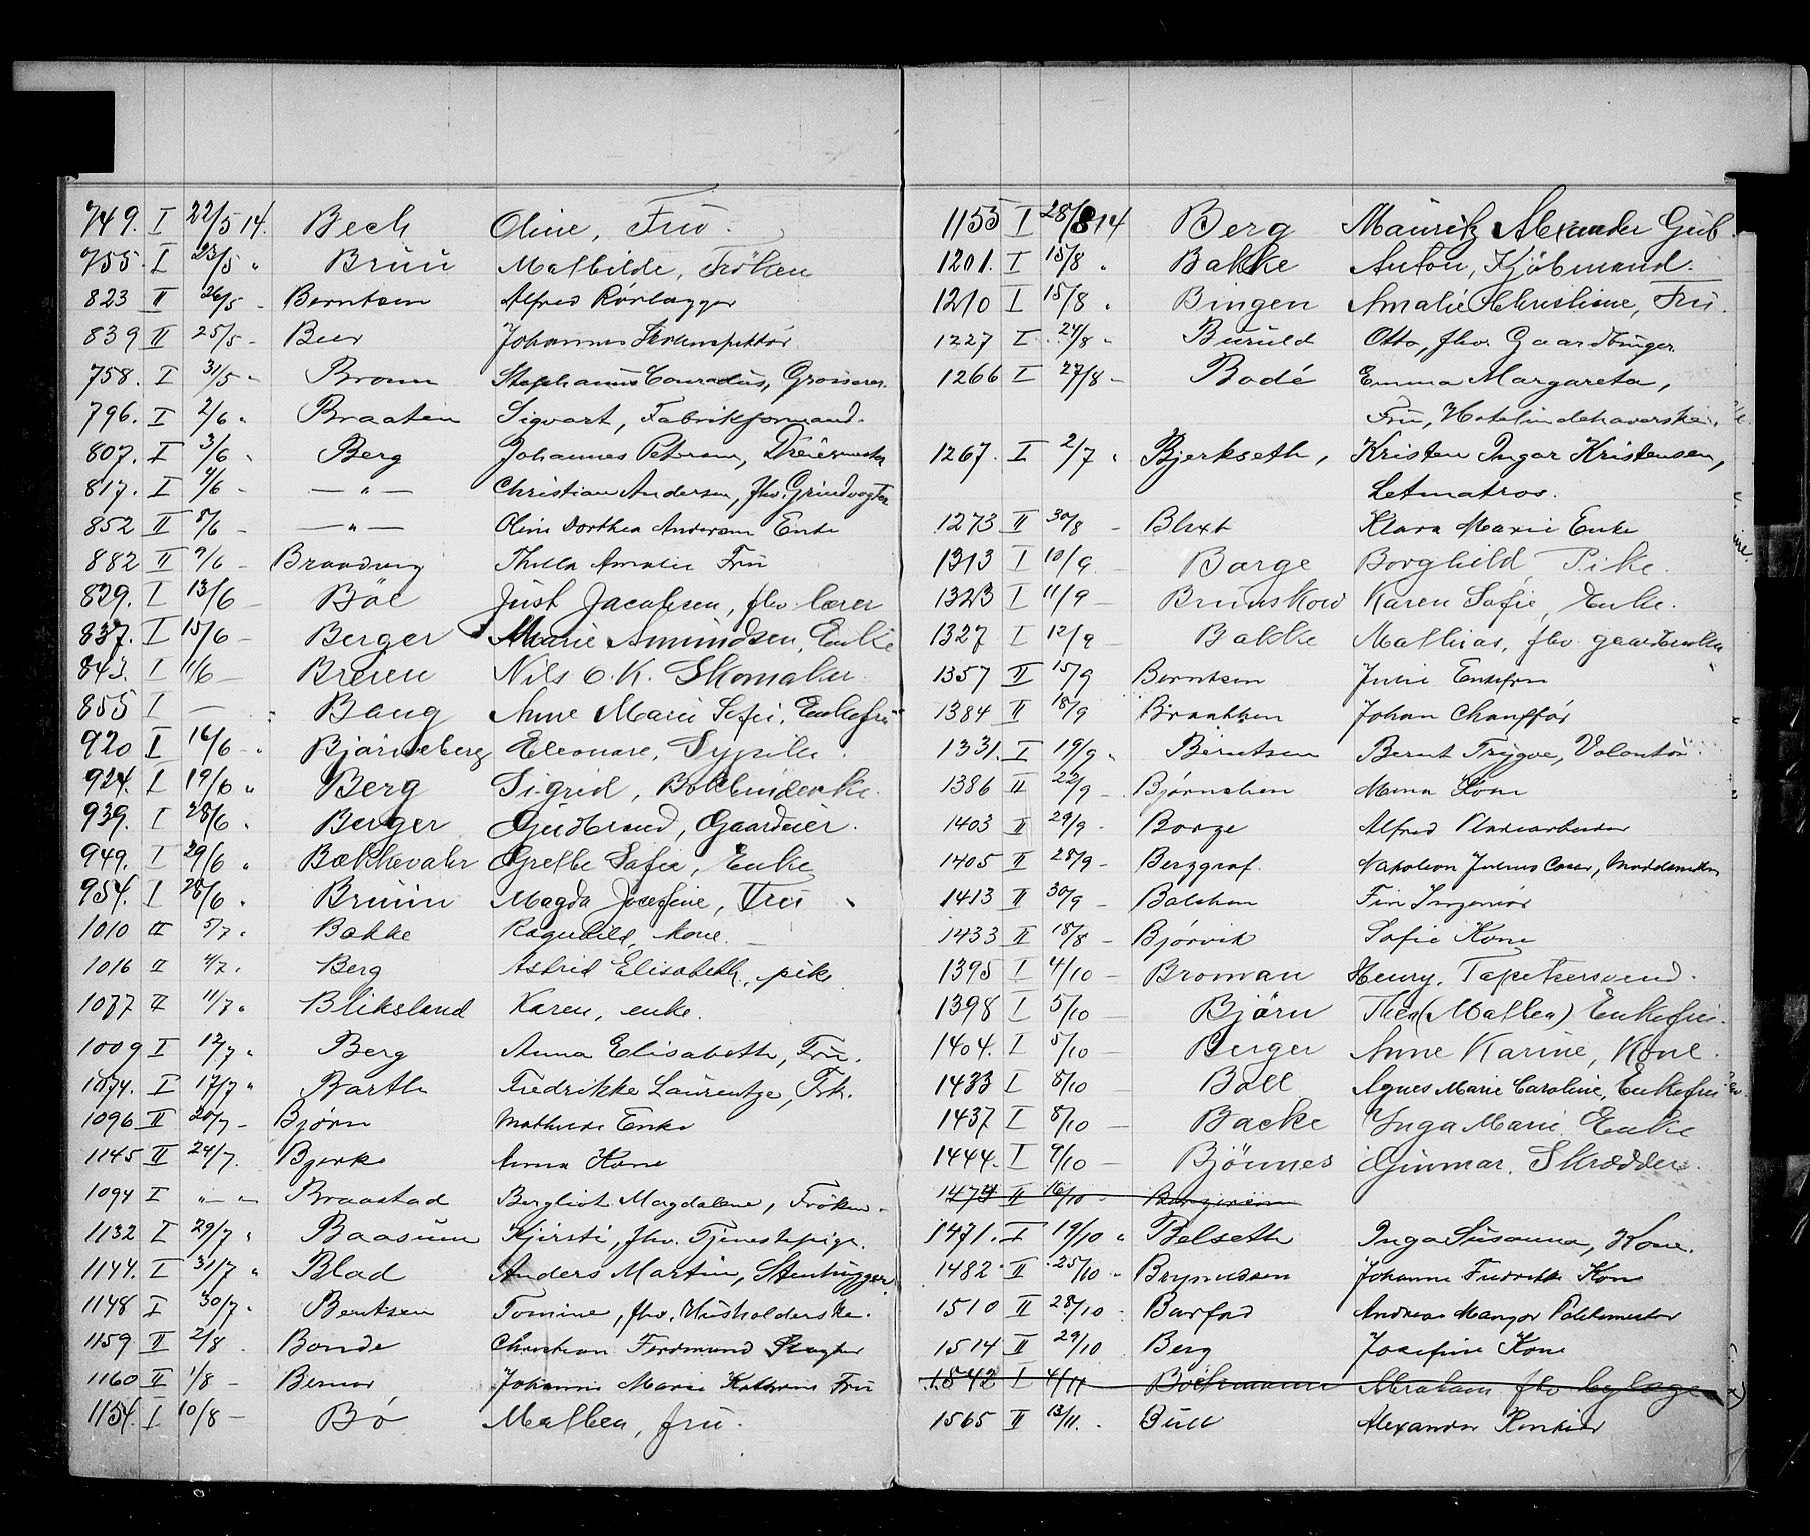 749. I 22/5 14. Bech Oline, Frü.
755. I 23/5 " Bruu Mathilde, Fröken
823 II 26/5 - Berntsen Alfred Rørlægger
839 II 25/5 - Beer Johannes Skoleinspektör
758. I 31/5 " Bronn Stephanus Conradus, Grosserer.
796. I 2/6 " Braaten Sigvart, Fabrikformand.
807. I 3/6 " Berg Johannes Petersen, Dreiermester
817. I 4/6 - — " — Christian Andersen, fhv. Grindvogter
852 II 5/6 - — " — Oline Dorthea Andersen Enke
882 II 9/6 - Braadvig Thilla Amalie Frü
829. I 13/6 - Böe Just Jacobsen, fhv. lærer
837. I 15/6 - Berger Marie Amundsen, Enke
843. I 1/6 - Breien Nils O. K. Skomaker
855 I — " Bang Anne Marie Sofie, Enkefrü
920 I 16/6 - " Bjarneberg Eleonore, Sypike.
924. I 19/6 " Berg Sigrid, Bokbinderske.
939. I 28/6 " Berger Gudbrand, Gaardeier.
949. I 29/6 " Bækkevaler Grethe Sofie, Enke
954. I 28/6 " Bruun Magda Josefine, Frü
1010 II 5/7 " Bakke Ragnhild, kone.
1016 II 4/7 " Berg Astrid Elisabeth, pike
1077 II 11/7 " Bliksland Karen, enke.
1009 I 12/7 " Berg Anna Elisabeth, Frü.
1074. I 17/7 " Barth Fredrikke Laurentze, Frk.
1096 II 20/7 - Bjørn Mathilde Enke
1145 II 24/7. Bjerke Anna Kone
1094 I " - " Braastad Bergliot Magdalene, Fröken.
1132 I 29/7 " Baasum Kjirsti, fhv. Tjenestepige.
1144. I 31/7 " Blad Anders Martin, Stenhugger
1148 I 30/7 " Bentsen Tomine, fhv. Husholderske.
1159 II 2/8 . Bonde Christian Ferdinand Slagter
1160 II 1/8 - Berner Johanne Marie Kathrine Frü
1154. I 10/8 - Bö Mathea, frü.
1155 I 28/8 14 Berg Mauritz Alexander Gub.
1201. I 15/8 " Bakke Anton, Kjöbmand.
1210 I 15/8 " Bingen Amalie Christine, Frü.
1227 I 24/8 " Buruld Otto, fhv. Gaardbruger.
1266 I 27/8 - Bodé Emma Margareta,
Frü, Hotelindehaverske.
1267. I 2/7 " Bjerkseth, Kristen Ingar Kristensen,
Letmatros.
1273 II 30/8 - Blixt Klara Marie Enke
1313 I 10/9 Borge Borghild, Pike.
1323 I 11/9 - Brunskow Karen Sofie, Enke.
1327 I 12/9 - Bakke Mathias, fhv.
1357 II 15/9 Berntsen Julie Enkefru
1384 II 18/9 Braathen Johan Chaufför
1331. I 19/9 " Berntsen Bernt Trygve, Volontör.
1386 II 22/9 - Bjørnehen Mina Kone
1403 II 29/9 - Borge Alfred Pladearbeider
1405 II 28/9 - Berggraf. Napoleon Julius Cæsar,
1413 II 30/9 - Balchen Finn Ingeniør
1433 II 18/8 - Bjørvik Sofie Kone
1395 I 4/10 - Broman Henry, Tapetsersvend.
1398 I 5/10 - Björn Thea (Mathea) Enkefru.
1404. I 5/10 - Berger Anne Karine, Kone.
1433 I 8/10 - Boll Agnes Marie Caroline, Enkefru
1437 I 8/10 - Backe Inga Marie Enke
1444. I 9/10 - Björnes Gunnar. Skrædder.
1474 II 16/10 -
1471. I 19/10 " Belseth Inga Susanna, Kone.
1482 II 25/10 " Brynildsen Johanne Fredrikke Kone
1510 II 28/10 . Barfod Andreas Mangor Politimester
1514 II 29/10 Berg Josefine Kone
1542 I 4/11 Bochmann Abraham fhv.
1565 II 13/11 . Bull Alexander Rentier